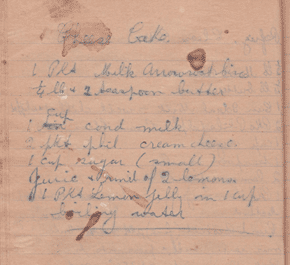 Cheese Cake.
1 Pkt Milk Arrowroot bisc
¼ lb + 2 teaspoon butter
1 cup cond milk
2 pkt phil cream cheese.
1 cup sugar (small)
Juice + rind of 2 lemons
1 Pkt Lemon jelly in 1 cup
boiling water